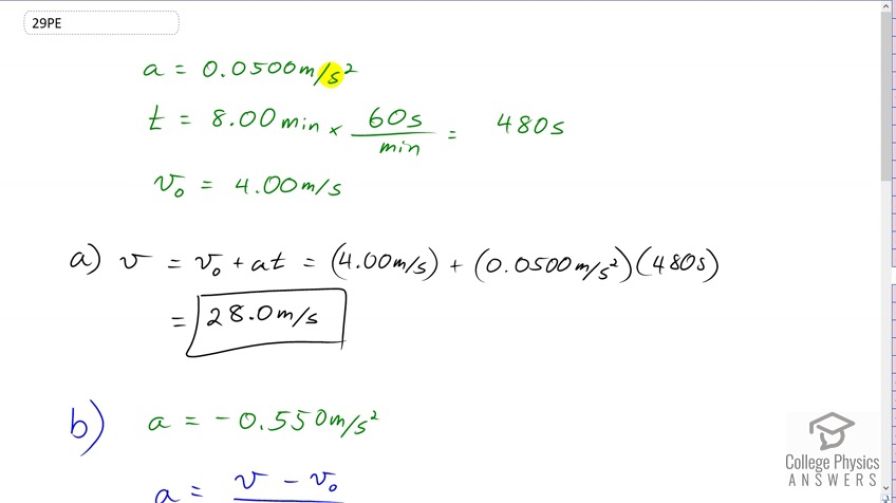 29PE
a = 0.0500 m/s²
t = 8.00 min × 60s/min = 480s
v₀ = 4.00 m/s
a) v = v₀ + at = (4.00 m/s) + (0.0500 m/s²)(480s)
= 28.0 m/s
b) a = -0.550 m/s²
a = v - v₀
College Physics
ANSWERS